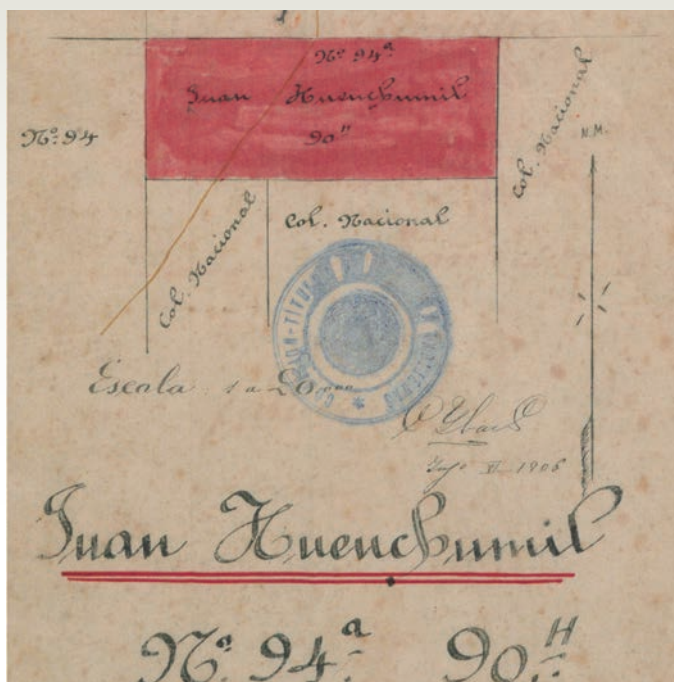 Nº 94ª
Juan Huenchumil
90ᴴ
Nº 94
Col. Nacional
N.M.
Col. Nacional
Col. Nacional
Escala 1 a 20.000
1906
Juan Huenchumil
Nº 94ª 90ᴴ